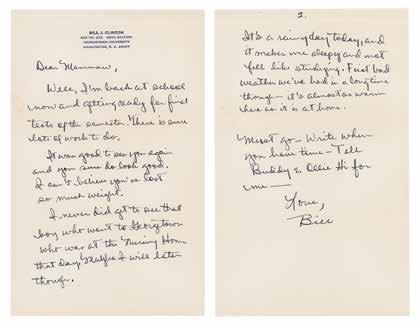 BILL J. CLINTON
BOX 232 HOYA STATION
GEORGETOWN UNIVERSITY
WASHINGTON, D. C. 20007
Dear Mammaw,
Well, I'm back at school
now and getting ready for final
tests of the semester. There is sure
lots of work to do.
It was good to see you again
and you sure do look good.
I can't believe you've lost
so much weight.
I never did get to see that
boy who went to Georgetown
who was at the Nursing Home
that day. Maybe I will later
though.
2.
It's a rainy day today, and
it makes me sleepy and not
feel like studying. First bad
weather we've had in a long time
though - it's almost as warm
here as it is at home.
Must go - Write when
you have time - Tell
Buddy & Ollie Hi for
me -
Love,
Bill